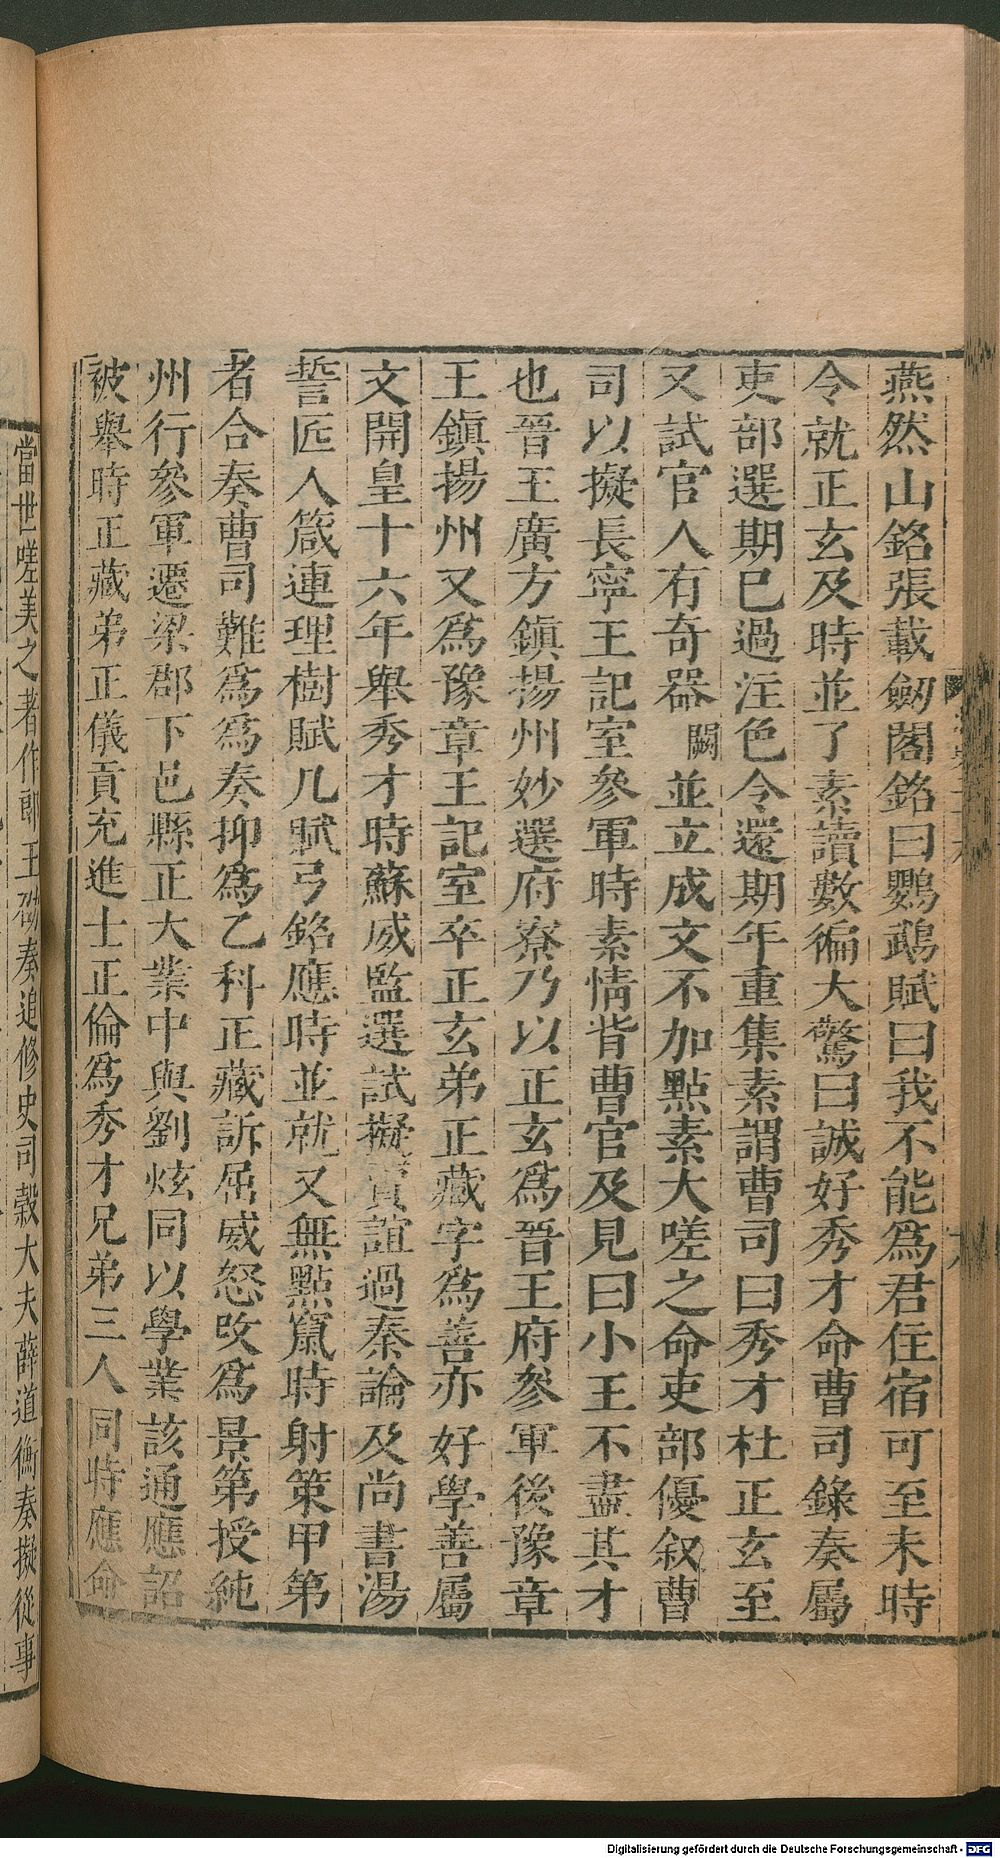 燕然山銘張載劒閣銘曰鸚鵡賦曰我不能爲君住宿可至未時
令就正玄及時並了素讀數徧大驚曰誠好秀才命曹司錄奏屬
吏部選期已過注色令還期年重集素謂曹司曰秀才杜正玄至
又試官人有奇器闕並立成文不加點素大嗟之命吏部優叙曹
司以擬長寧王記室參軍時素情背曹官及見曰小王不盡其才
也晉王廣方鎮揚州妙選府寮乃以正玄爲晉王府參軍後豫章
王鎮揚州又爲豫章王記室卒正玄弟正藏字爲善亦好學善屬
文開皇十六年舉秀才時蘇威監選試擬賈誼過秦論及尚書湯
誓匠人箴連理樹賦几賦弓銘應時並就又無點竄時射策甲第
者合奏曹司難爲爲奏抑爲乙科正藏訴屈威怒改爲景第授純
州行參軍遷梁郡下邑縣正大業中與劉炫同以學業該通應詔
被舉時正藏弟正儀貢充進士正倫爲秀才兄弟三人同時應命
當世嗟美之著作郎王劭奏追修史司穀大夫薛道衡奏擬從事
Digitalisierung gefördert durch die Deutsche Forschungsgemeinschaft - DFG